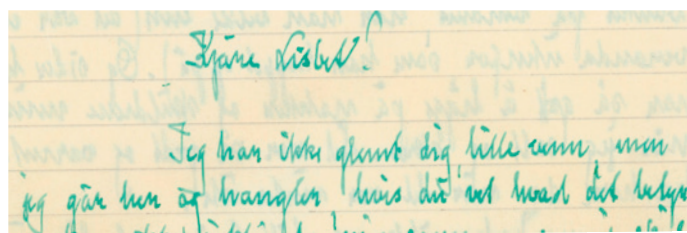 Kjære Lisbet!
Jeg har ikke glemt dig, lille venn, men
jeg går her og hangler hvis du vet hvad det betyr